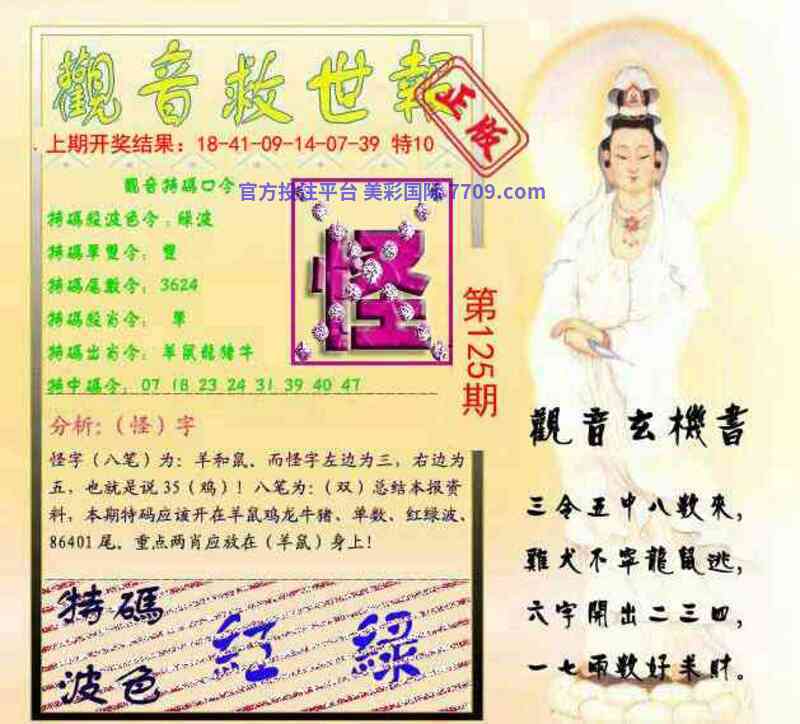 觀音救世報
正版
上期开奖结果：18-41-09-14-07-39 特10
觀音特碼口令
官方投注平台 美彩国际 7709.com
特碼殺波色令：綠波
特碼單雙令：雙
特碼尾數令：3624
特碼殺肖令： 單
特碼出肖令：羊鼠龍豬牛
特中碼令：07 18 23 24 31 39 40 47
怪
第125期
分析:（怪）字
怪字（八笔）为：羊和鼠．而怪字左边为三，右边为
五，也就是说35（鸡）！八笔为:（双）总结本报资
料，本期特码应该开在羊鼠鸡龙牛猪、单数、红绿波、
86401尾．重点两肖应放在（羊鼠）身上！
特碼
波色
紅 綠
觀音玄機書
三令五中八數來，
雞犬不寧龍鼠逃，
六字開出二三四，
一七兩數好求財。